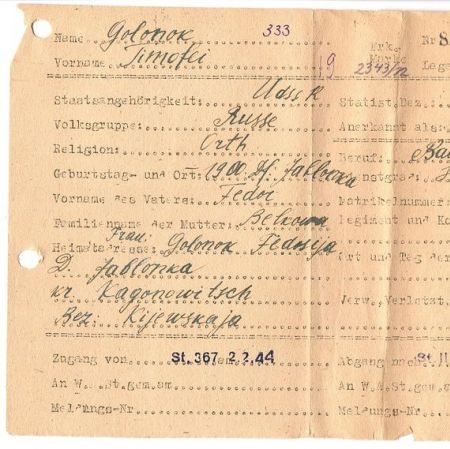 Name Golonok 333 Erk. Nr 8
Vorname Timofei 19 Marke 2343/72 Lage
Staatsangehörigkeit: UdSSR Statist.Bez.
Volksgruppe: Russe Anerkannt als:
Religion: Orth Beruf: Bau
Geburtstag- und Ort: 1900 Df. Jablonka
Vorname des Vaters: Fedor Matrikelnummer
Familienname der Mutter: Belkowa Regiment und Ko
Frau:
Heimatadresse: Golonok Fedosija
D. Jablonka Ort und Tag der
kr. Kagonowitsch
Bez: Kijewskaja Verw.Verletzt.
Zugang von St. 367 2.2.44 Abgang nach St. II
An W.A.St.gem.am An W.A.St.gem.am
Meldungs-Nr Meldungs-Nr.